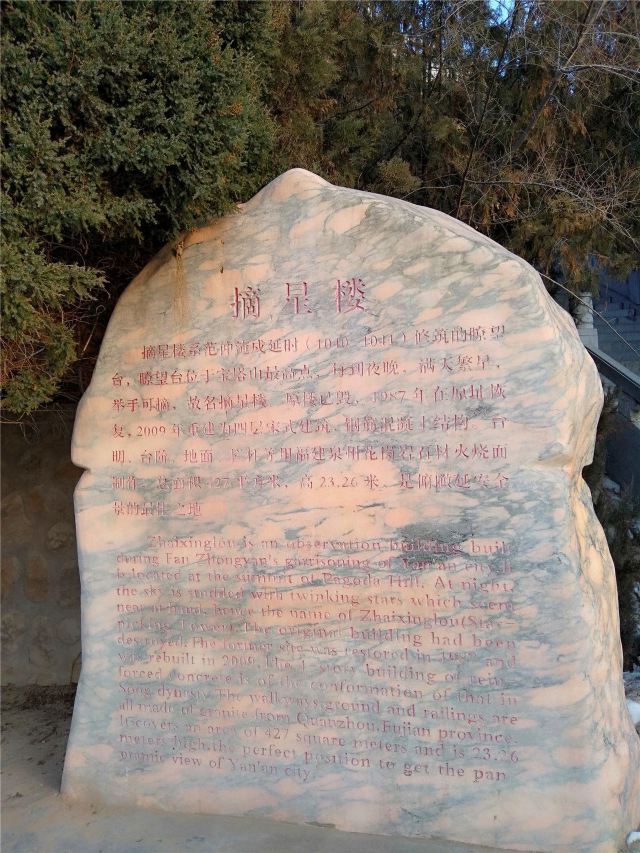 摘星楼
摘星楼系范仲淹戍延时（1040-1041）修筑的瞭望
台，瞭望台位于宝塔山最高点，每到夜晚，满天繁星，
举手可摘，故名摘星楼。原楼已毁，1987年在原址恢
复，2009年重建为四层宋式建筑，钢筋混凝土结构。台
明、台阶、地面、栏杆等用福建泉州花岗岩石材火烧面
制作。总面积427平方米，高23.26米，是俯瞰延安全
景的最佳之地
Zhaixinglou is an observation building built
during Fan Zhongyan's garrisoning of Yan'an city.It
is located at the summit of Pagoda Hill. At night,
the sky is studded with twinking stars which seem
near in hand, hence the name of Zhaixinglou(Star-
picking Tower).The original building had been
destroyed.The former site was restored in 1987 and
was rebuilt in 2009.The 4-story building of rein-
forced concrete is of the conformation of that in
Song dynasty.The walkways,ground and railings are
all made of granite from Quanzhou,Fujian province.
It covers an area of 427 square meters and is 23.26
meters high,the perfect position to get the pan
oramic view of Yan'an city.